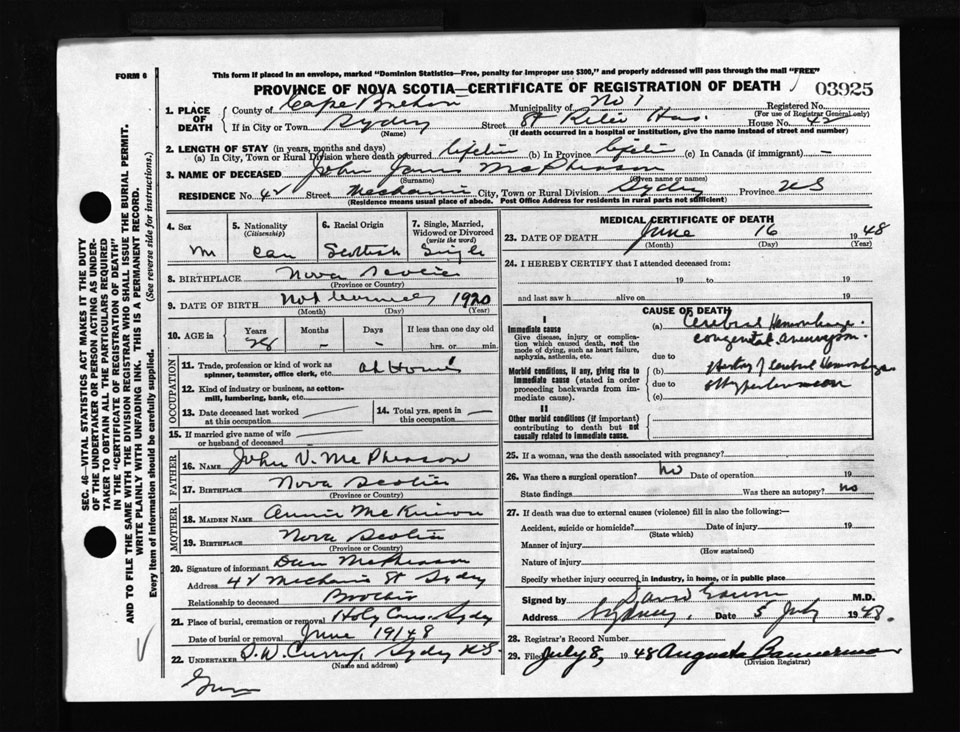 FORM 6
This form if placed in an envelope, marked "Dominion Statistics—Free, penalty for improper use $300," and properly addressed will pass through the mail "FREE"
PROVINCE OF NOVA SCOTIA—CERTIFICATE OF REGISTRATION OF DEATH
03925
1. PLACE OF DEATH
County of Cape Breton Municipality of No 1 Registered No.
(For use of Registrar General only)
If in City or Town Sydney Street St House No.
(Name) (If death occurred in a hospital or institution, give the name instead of street and number)
2. LENGTH OF STAY (in years, months and days)
(a) In City, Town or Rural Division where death occurred (b) In Province (c) In Canada (if immigrant) —
3. NAME OF DECEASED John James McPherson
(Surname) (Given name or names)
RESIDENCE No. 42 Street Mechanic City, Town or Rural Division Sydney Province NS
(Residence means usual place of abode. Post Office Address for residents in rural parts not sufficient)
4. Sex M
5. Nationality (Citizenship) Can
6. Racial Origin Scottish
7. Single, Married, Widowed or Divorced (write the word) Single
8. BIRTHPLACE Nova Scotia
(Province or Country)
9. DATE OF BIRTH Not 1920
(Month) (Day) (Year)
10. AGE in Years 28 Months — Days — If less than one day old
hrs. or min.
OCCUPATION
11. Trade, profession or kind of work as spinner, teamster, office clerk, etc. At Home
12. Kind of industry or business, as cotton-mill, lumbering, bank, etc.
13. Date deceased last worked at this occupation
14. Total yrs. spent in this occupation
15. If married give name of wife or husband of deceased
FATHER
16. NAME John V. McPherson
17. BIRTHPLACE Nova Scotia
(Province or Country)
MOTHER
18. MAIDEN NAME Annie McKinnon
19. BIRTHPLACE Nova Scotia
(Province or Country)
20. Signature of informant Dan McPherson
Address 42 Mechanic St Sydney
Relationship to deceased Brother
21. Place of burial, cremation or removal Holy Cross Sydney
Date of burial or removal June 19/48
22. UNDERTAKER D.W. Curry, Sydney N.S.
(Name and address)
MEDICAL CERTIFICATE OF DEATH
23. DATE OF DEATH June 16 1948
(Month) (Day) (Year)
24. I HEREBY CERTIFY that I attended deceased from:
19 to 19
and last saw h alive on 19
CAUSE OF DEATH
I
Immediate cause
Give disease, injury or complication which caused death, not the mode of dying, such as heart failure, asphyxia, asthenia, etc.
(a) Cerebral Hemorrhage
congenital aneurysm.
due to
Morbid conditions, if any, giving rise to immediate cause (stated in order proceeding backwards from immediate cause).
(b) History of Cerebral Hemorrhage
due to & Hypertension
(c)
II
Other morbid conditions (if important) contributing to death but not causally related to immediate cause.
25. If a woman, was the death associated with pregnancy?
26. Was there a surgical operation? No Date of operation 19
State findings Was there an autopsy? no
27. If death was due to external causes (violence) fill in also the following:—
Accident, suicide or homicide? Date of injury 19
(State which)
Manner of injury
(How sustained)
Nature of injury
Specify whether injury occurred in industry, in home, or in public place
Signed by David M.D.
Address Sydney, Date 5 July 1948.
28. Registrar's Record Number
29. Filed July 8, 1948 Augusta Bannerman
(Division Registrar)
SEC. 46—VITAL STATISTICS ACT MAKES IT THE DUTY
OF THE UNDERTAKER OR PERSON ACTING AS UNDER-
TAKER TO OBTAIN ALL THE PARTICULARS REQUIRED
IN THE "CERTIFICATE OF REGISTRATION OF DEATH"
AND TO FILE THE SAME WITH THE DIVISION REGISTRAR WHO SHALL ISSUE THE BURIAL PERMIT.
WRITE PLAINLY WITH UNFADING INK. THIS IS A PERMANENT RECORD.
Every item of information should be carefully supplied. (See reverse side for instructions.)